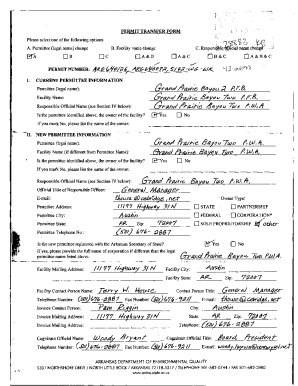 PERMIT TRANSFER FORM
Please select one of the following options
A. Permittee (legal name) change B. Facility name change C. Responsible Official name change
A B C A & B A & C B & C A & B & C
PERMIT NUMBER:
I. CURRENT PERMITTEE INFORMATION
Permittee (legal name): Grand Prairie Bayou 2 P.F.B.
Facility Name: Grand Prairie Bayou Two P.F.B.
Responsible Official Name (see Section IV below): Grand Prairie Bayou Two P.W.A
Is the permittee identified above, the owner of the facility? Yes No
If you mark No, please list the name of the owner:
II. NEW PERMITTEE INFORMATION
Permittee (legal name): Grand Prairie Bayou Two P.W.A.
Facility Name (if different from Permittee Name): Grand Prairie Bayou Two P.W.A.
Is the permittee identified above, the owner of the facility? Yes No
If you mark No, please list the name of the owner:
Responsible Official Name (see Section IV below): Grand Prairie Bayou Two P.W.A.
Official Title of Responsible Officer: General Manager
E-mail: Owner Type:
Permittee Address: 11177 Highway 31N STATE PARTNERSHIP
Permittee City: Austin FEDERAL CORPORATION*
Permittee State: AR Zip: 72007 SOLE PROPRIETORSHIP other
Permittee Telephone No.: (501) 676-2887
Is the new permittee registered with the Arkansas Secretary of State? Yes No
*If yes, please provide the full name of corporation if different than the legal
permittee name listed above. Grand Prairie Bayou Two P.W.A.
Facility Mailing Address: 11177 Highway 31N Facility City: Austin
Facility State: AR Zip: 72007
Facility Contact Person Name: Terry W. House Contact Person Title: General Manager
Telephone Number: (501) 676-2887 Fax Number: (501) 676-9211 E-mail:
Invoice Contact Person: Pam City: Austin
Invoice Mailing Address: 11177 Highway 31N State: AR Zip: 72007
Invoice Mailing Address: Telephone: (501) 676-2887
Cognizant Official Name: Woody Bryant Cognizant Official Title: Board President
Telephone Number: (501) 676-2887 Fax Number: (501) 676-9211 E-mail:
ARKANSAS DEPARTMENT OF ENVIRONMENTAL QUALITY